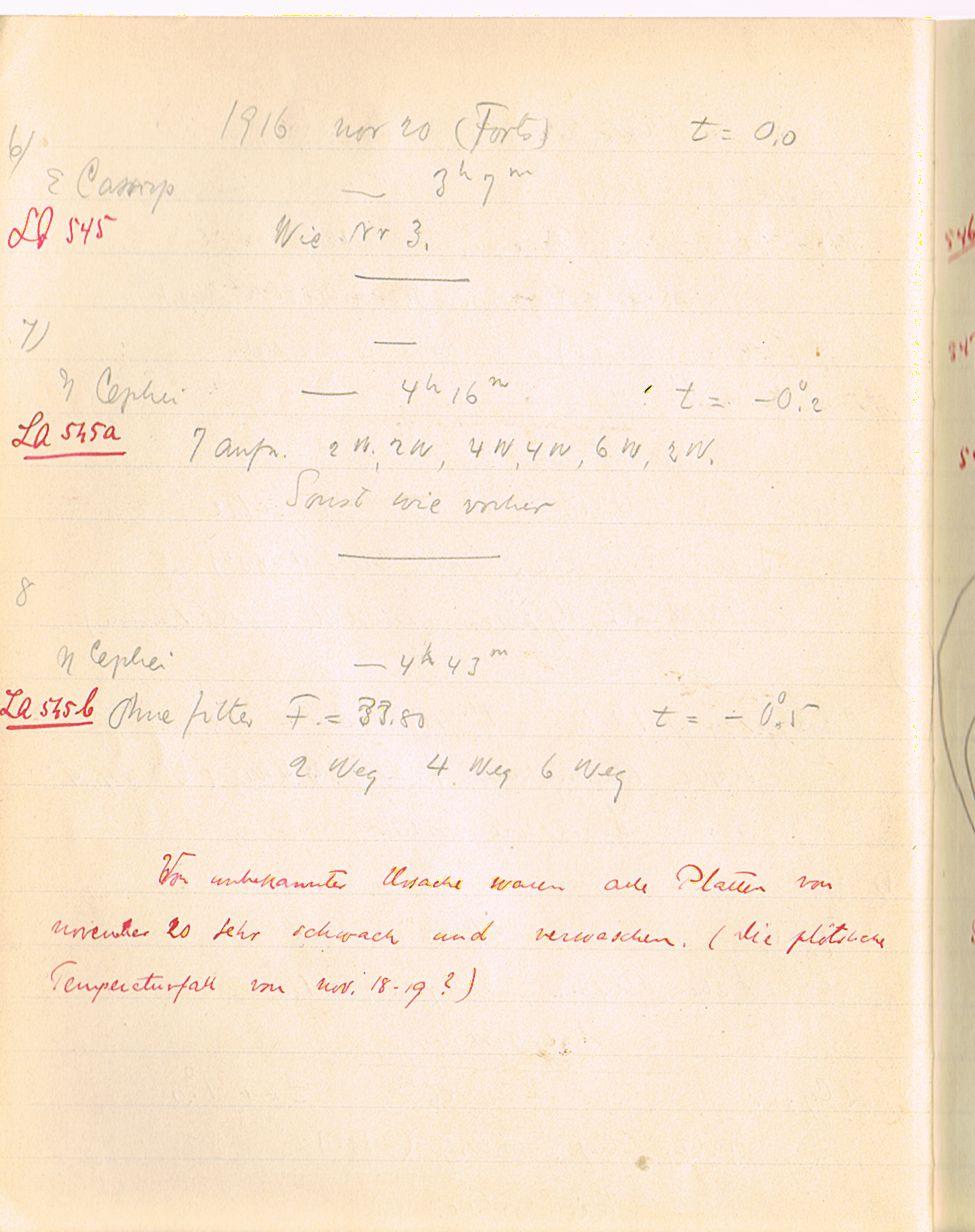 1916 nov 20 (Forts) t = 0,0
6)
ε Cassiop — 3h 7m
La 545 Wie Nr 3.
7)
η Cephei — 4h 16m t = -0°.2
La 545a 7 aufn. 2 W, 2W, 4W, 4W, 6W, 2W.
Sonst wie vorher
8
η Cephei — 4h 43m
La 545b Ohne filter F. = 33.80 t = - 0°.5
2 Weg 4 Weg 6 Weg
Von unbekannter Ursache waren alle Platten von
november 20 sehr schwach und verwaschen. (Die plötsliche
Temperaturfall von nov. 18-19?)
546
547